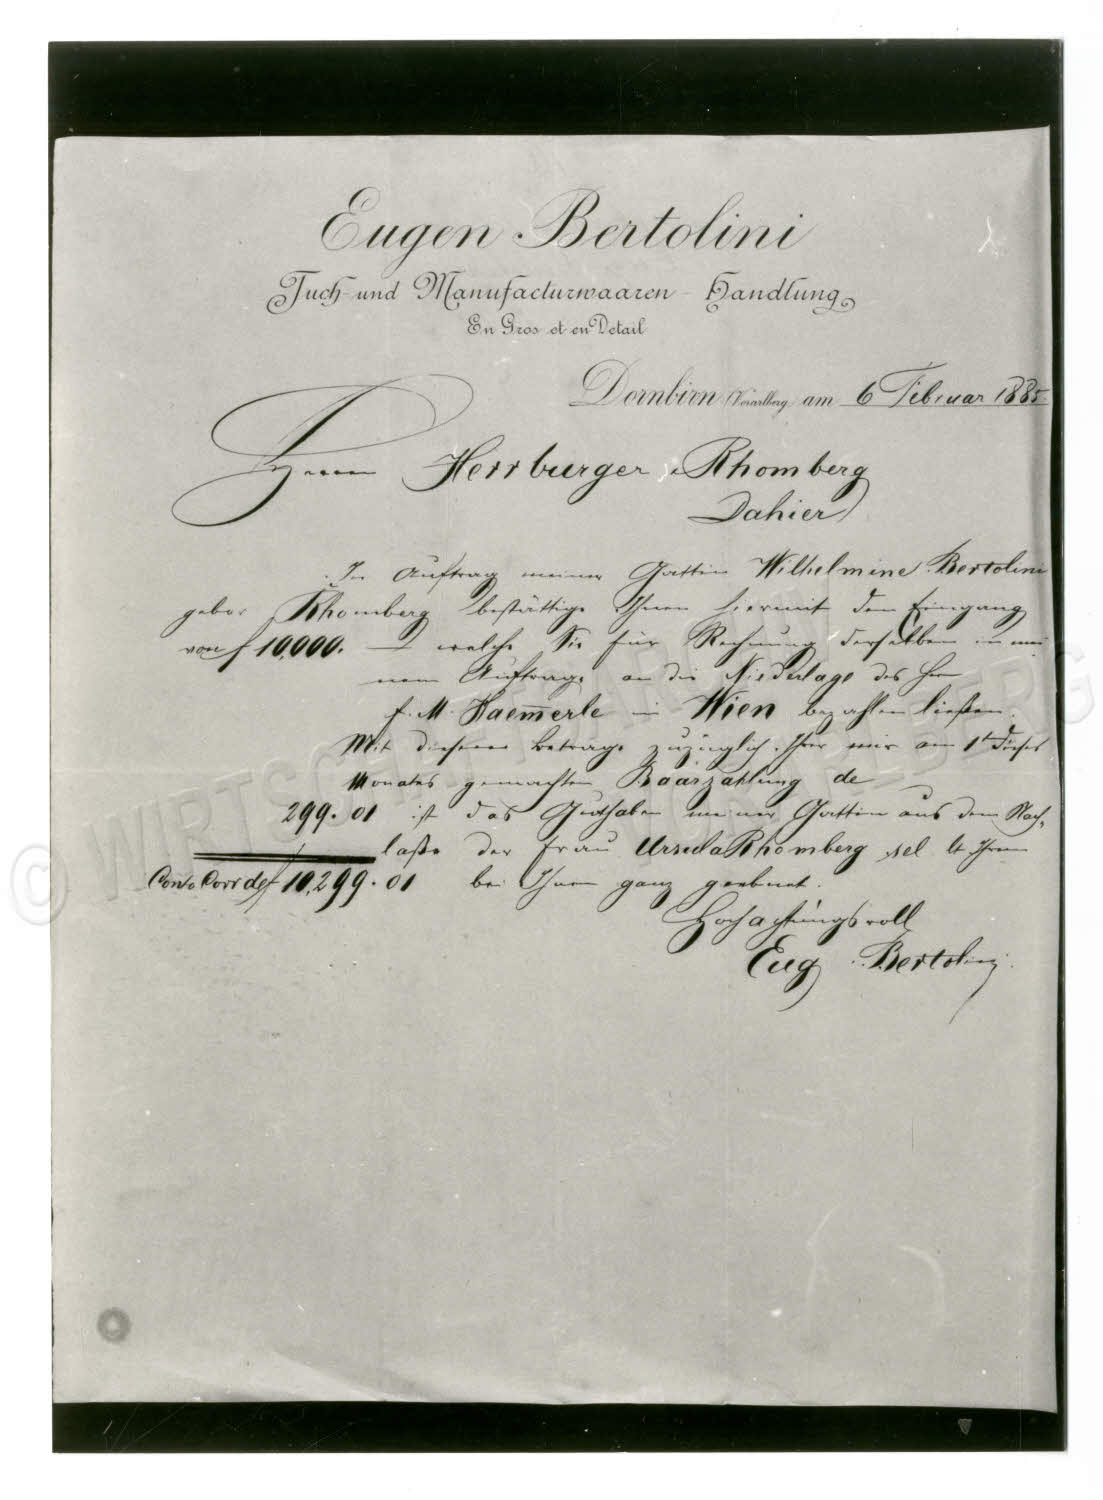 Eugen Bertolini
Tuch- und Manufacturwaaren-Handlung
En Gros et en Detail
Dornbirn (Vorarlberg) am 6 Februar 1885.
Herren Herrburger & Rhomberg
Dahier
Im Auftrag meiner Gattin Wilhelmine Bertolini
gebor Rhomberg bestättige Ihnen hiermit den Eingang
von f 10,000.— welche Sie für Rechnung derselben in mei
nem Auftrage an die Niederlage des Hrn
F. M. Haemmerle in Wien bezahlen ließen.
Mit diesem Betrage zuzüglich Ihrer mir am 1t dieses
Monates gemachten Baarzahlung de
299.01 ist das Guthaben meiner Gattin aus dem Nach-
laße der Frau Ursula Rhomberg sel lt Ihrem
Conto Corr de f 10,299.01 bei Ihnen ganz geebnet.
Hochachtungsvoll
Eug. Bertolini
© WIRTSCHAFTSARCHIV VORARLBERG